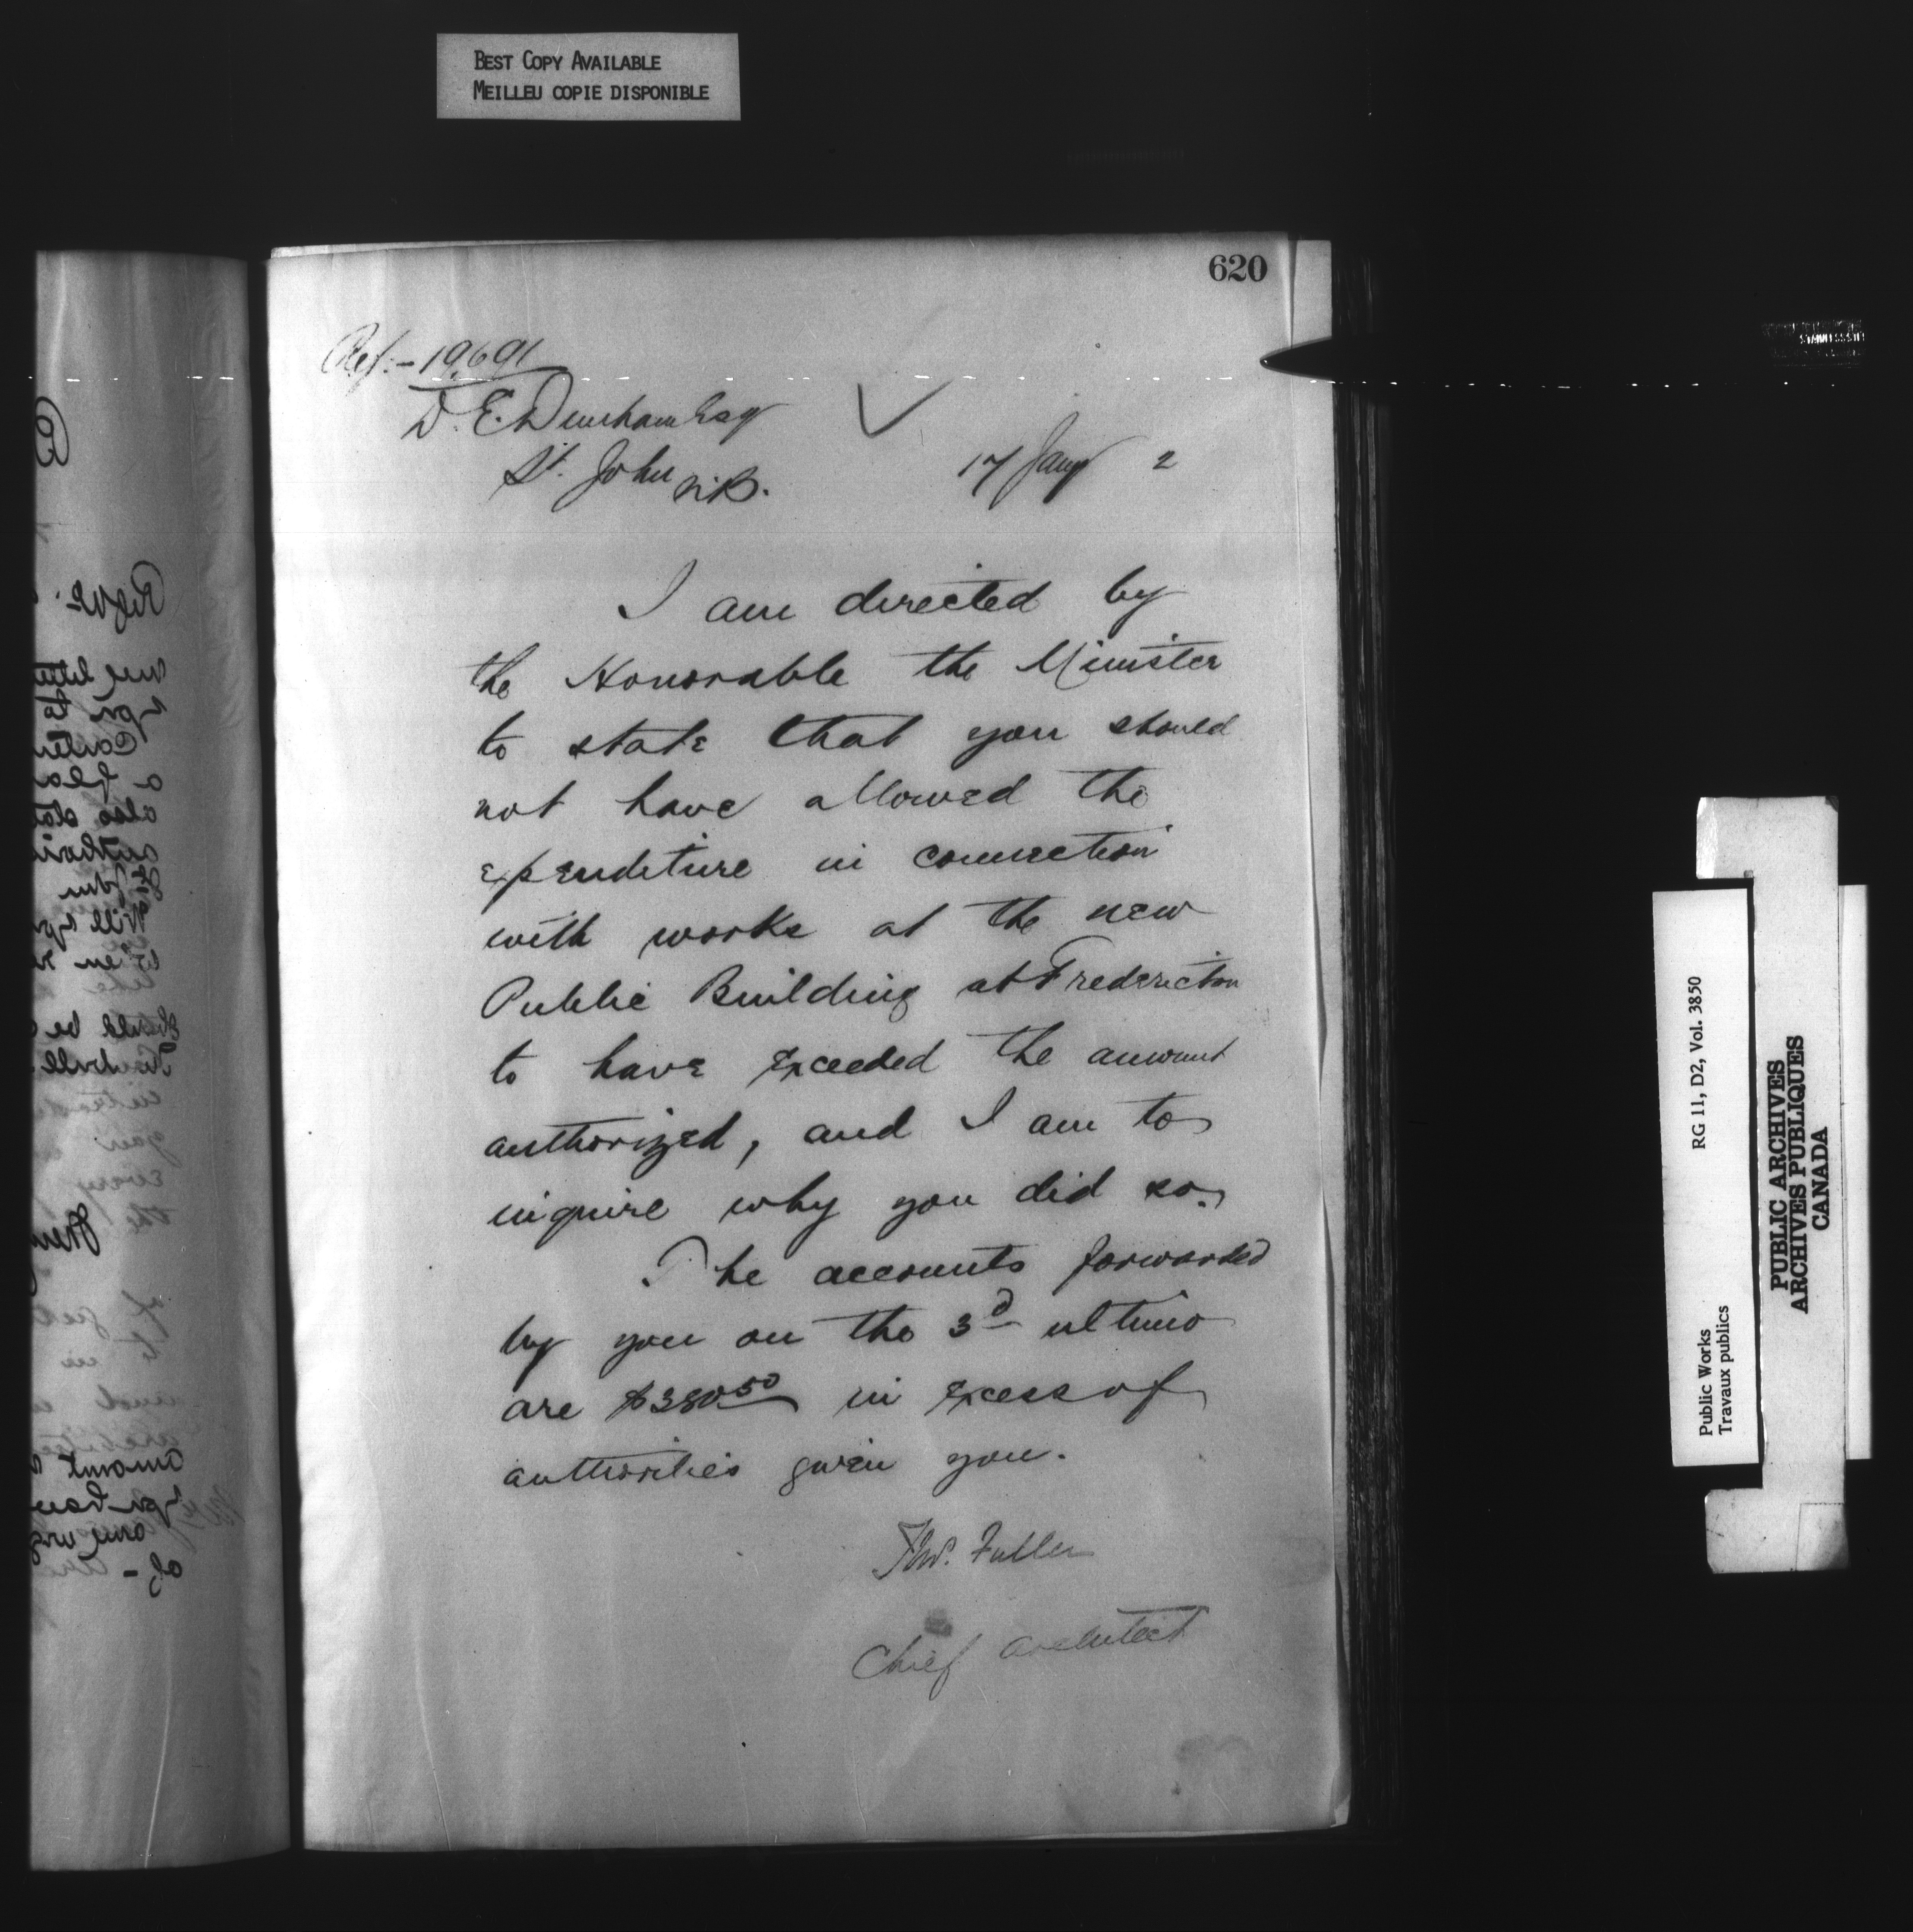 BEST COPY AVAILABLE
MEILLEU COPIE DISPONIBLE
620
Ref:- 19691
D. E. Dunham Esq
St. John N.B.
17 Jany 2
I am directed by
the Honorable the Minister
to state that you should
not have allowed the
expenditure in connection
with works at the new
Public Building at Fredericton
to have exceeded the amount
authorized, and I am to
inquire why you did so.
The accounts forwarded
by you on the 3d ultimo
are $380 50 in excess of
authorities given you.
Thos. Fuller
Chief Architect
RG 11, D2, Vol. 3850
Public Works
Travaux publics
PUBLIC ARCHIVES
ARCHIVES PUBLIQUES
CANADA